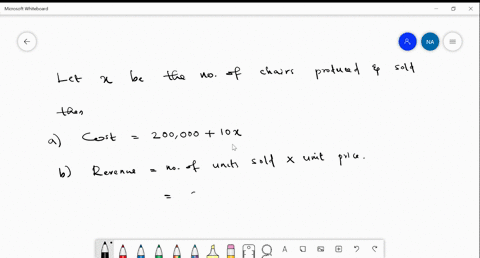 Microsoft Whiteboard
NA
Let x be the no. of chairs produced & sold
then
a) Cost = 200,000 + 10x
b) Revenue = no. of units sold x unit price.
=
A